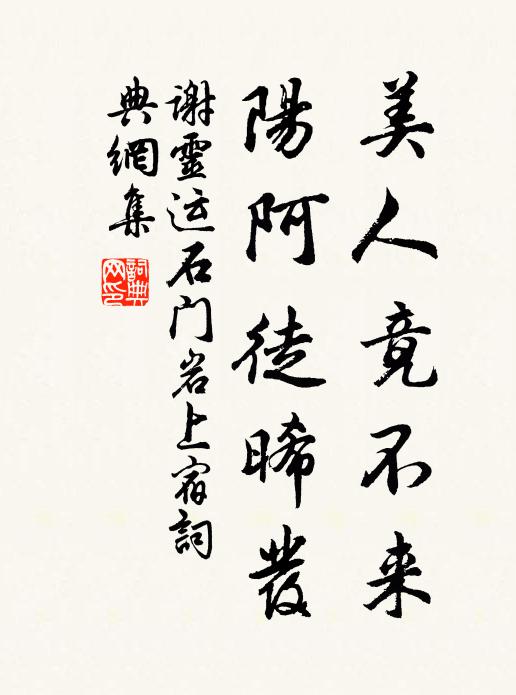 美人竟不来
陽阿徒晞發
谢靈运石门岩上宿詞
典網集
詞典
网印